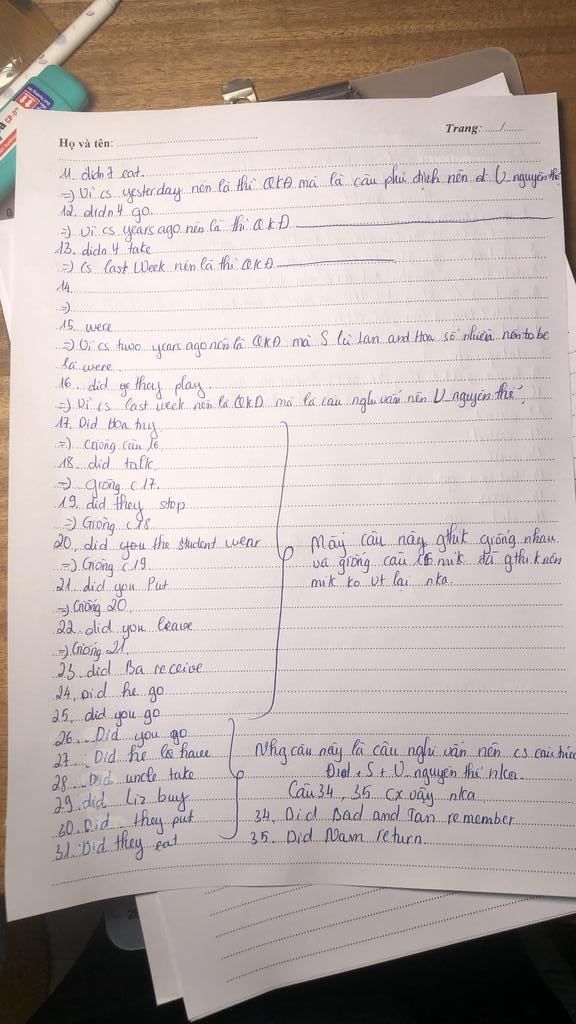 Họ và tên:
Trang: ...../......
11. didn't eat.
=) Vì cs yesterday nên là thì QKĐ mà là câu phủ định nên di V_nguyên thể
12. didn't go.
=) Vì cs years ago nên là thì QKĐ
13. didn't take
=) Cs last week nên là thì QKĐ
14.
=)
15. were
=) Vì cs two years ago nên là QKĐ mà S là Lan and Hoa số nhiều nên to be
là were.
16. did they play.
=) Vì cs last week nên là QKĐ mà là câu nghi vấn nên V_nguyên thể.
17. Did Hoa try
=) Giống câu 16
18. did talk
=) giống c17.
19. did they stop
=) Giống c18.
20. did you the student wear
=) Giống c19
21. did you Put
=) Giống 20
22. did you leave
=) Giống 21.
23. did Ba receive
24. Did he go
25. did you go
Mấy câu này gthik giống nhau
và giống câu 16 mik đã gthik nên
mik ko vt lại nka.
26. Did you go
27. Did he have
28. Did uncle take
29. did Liz buy
30. Did they put
31. Did they eat
Nhg câu này là câu nghi vấn nên cs cấu trúc
Did + S + V_nguyên thể nka.
Câu 34, 35 cx vậy nka
34. Did Bad and Tan remember
35. Did Nam return.